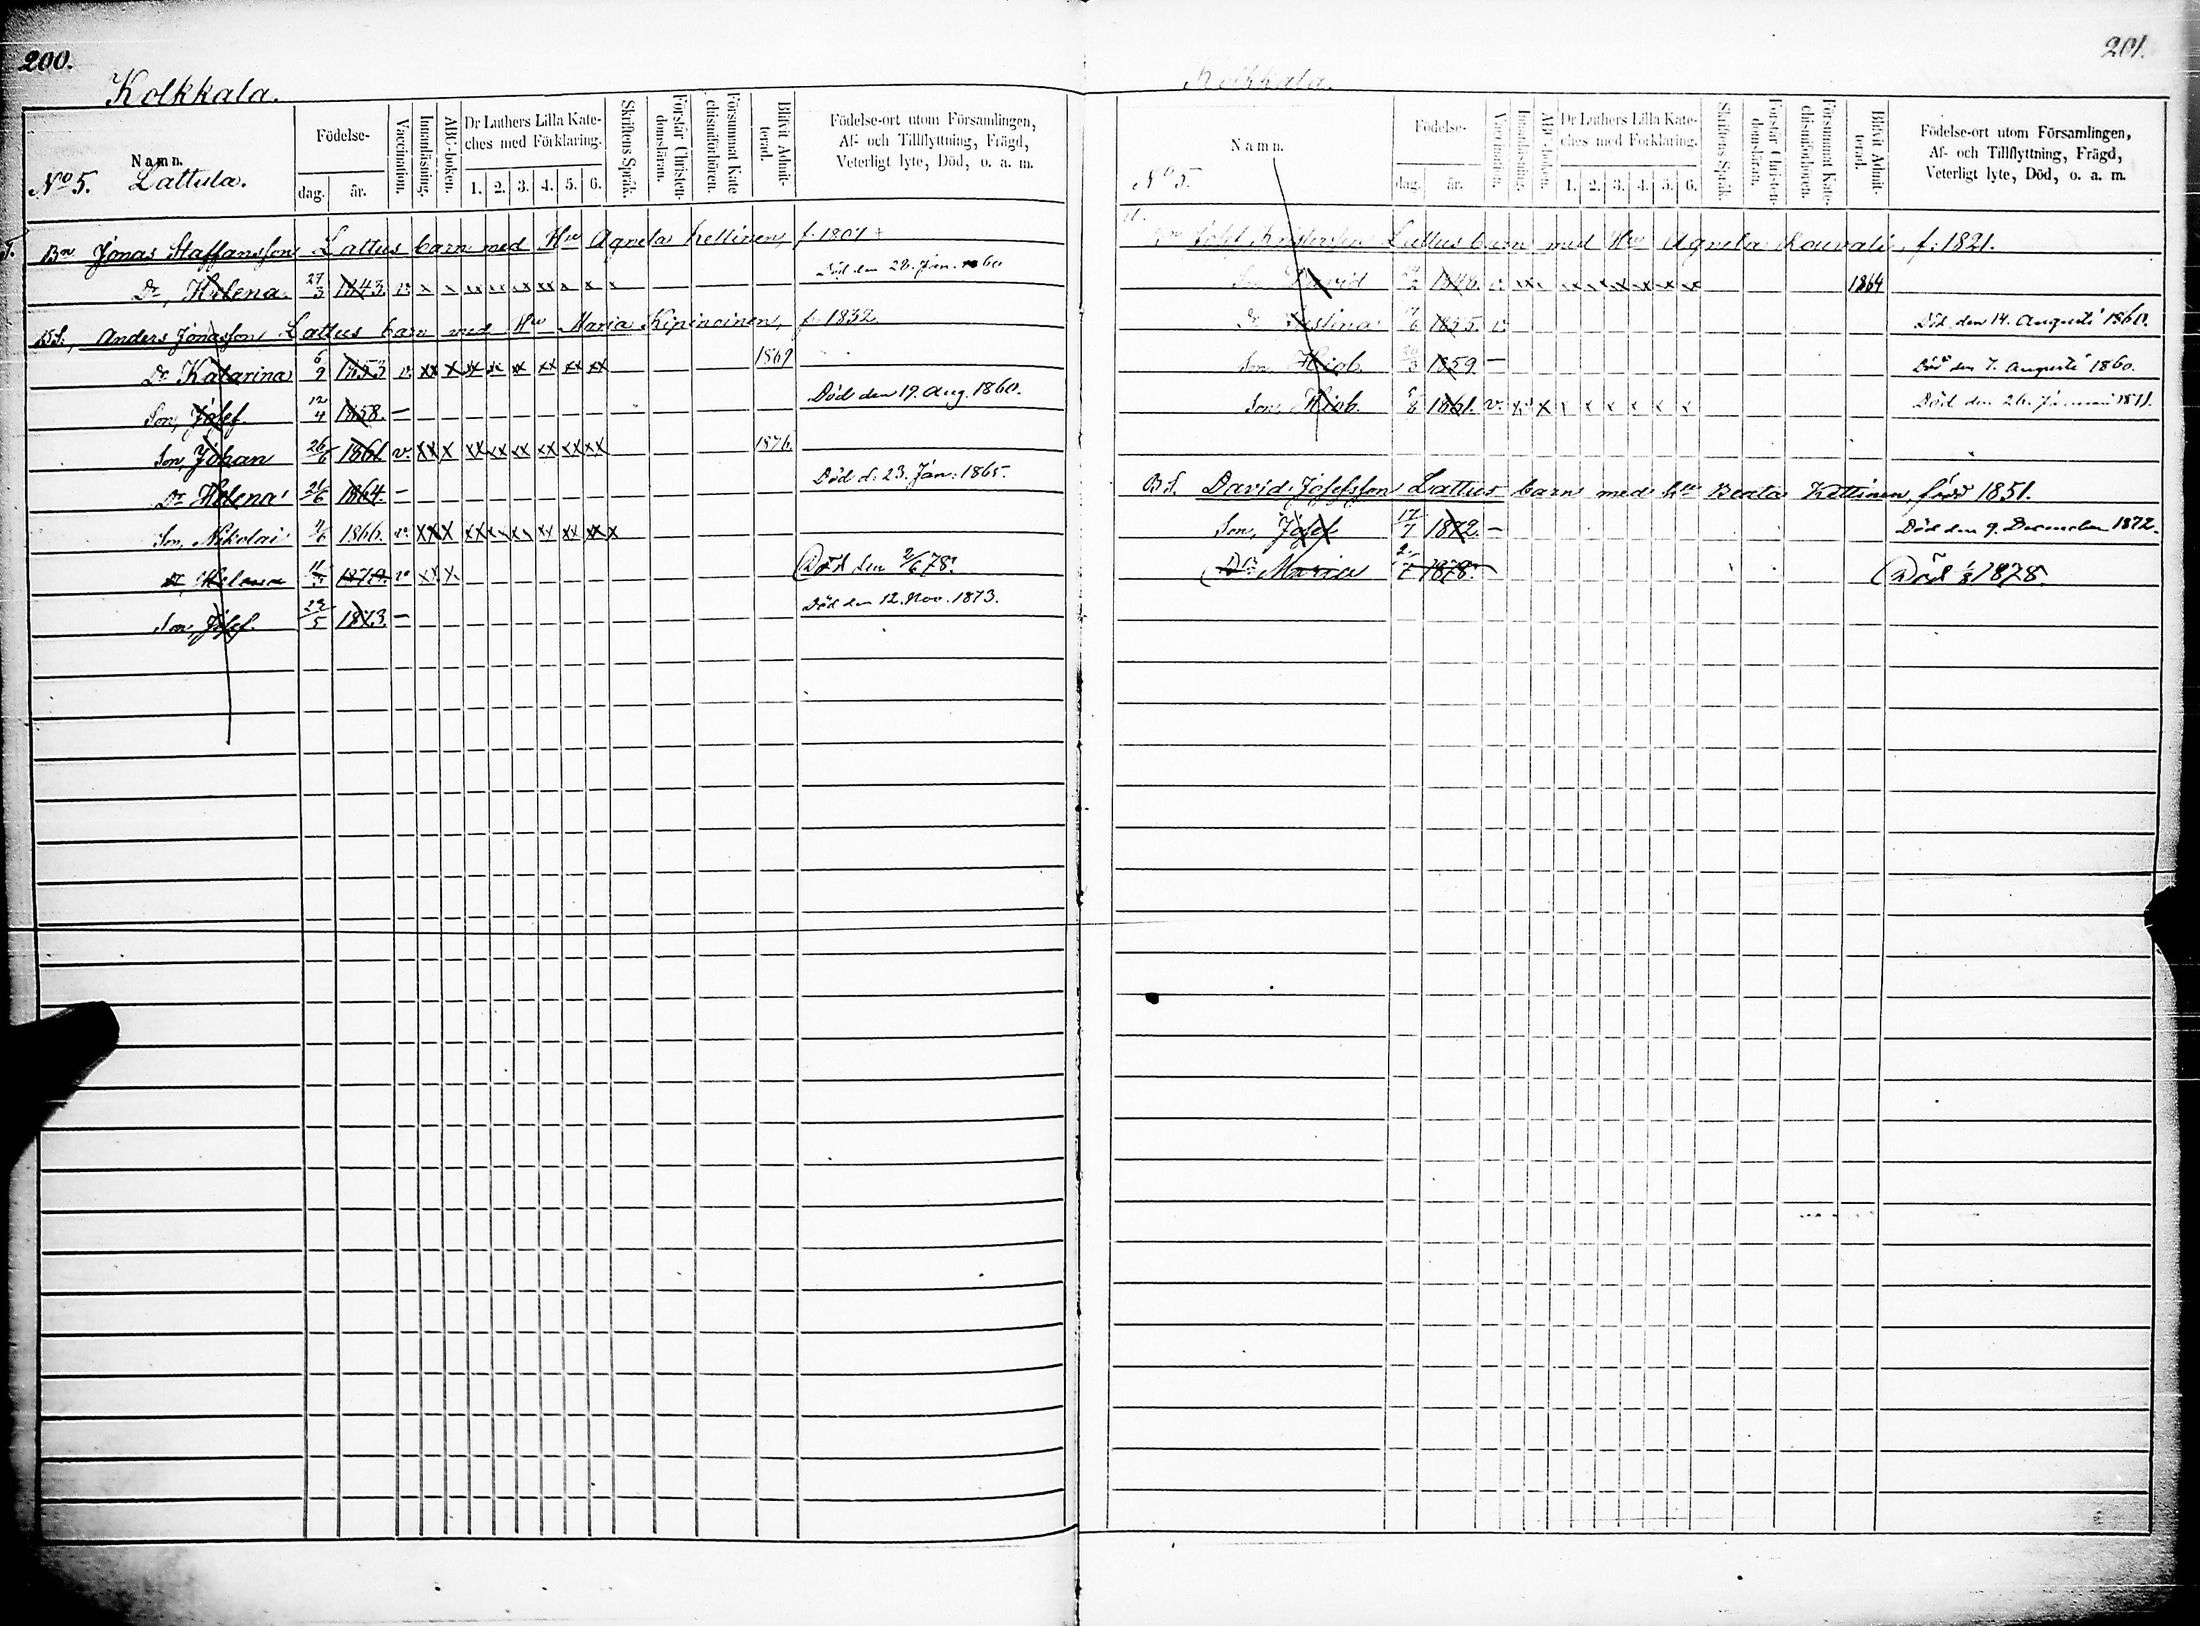 200.
Kolkkala.
Namn.
No 5. Lattula.
Födelse-
dag. år.
Vaccination.
Innanläsning.
ABC-boken.
Dr Luthers Lilla Kate-
ches med Förklaring.
1. 2. 3. 4. 5. 6.
Skriftens Språk.
Förstår Christen-
domsläran.
Försummat Kate
chismiförhören.
Blifvit Admit-
terad.
Födelse-ort utom Församlingen,
Af- och Tillflyttning, Frägd,
Veterligt lyte, Död, o. a. m.
Bn Jonas Staffansson Lattus barn med Hu Agneta Kettinen, f. 1801
Dr, Helena. 27/3 1843. v. x x xx xx xx xx x x x Död den 28. Jan. 1860
BS., Anders Jonasson Lattus barn med Hu Maria Kipinoinen, f. 1832
Dr Katarina 6/9 1853 v. xx x xx xx xx xx xx xx 1869
Son, Josef. 12/4 1858. — Död den 19. Aug. 1860.
Son, Johan 26/6 1861 v. xx x xx xx xx xx xx xx 1876.
Dr Helena 21/6 1864. — Död d. 23. Jan. 1865.
Son, Nikolai 7/6 1866. v. xxx x xx xx xx xx xx xx x
Dr Helena 1870. v xx x Död den 2/6 78.
Son, Josef. 23/5 1873. — Död den 12. Nov. 1873.
201.
Kolkkala.
Namn.
No 5.
Födelse-
dag. år.
Vaccination.
Innanläsning.
ABC-boken.
Dr Luthers Lilla Kate-
ches med Förklaring.
1. 2. 3. 4. 5. 6.
Skriftens Språk.
Förstår Christen-
domsläran.
Försummat Kate-
chismiförhören.
Blifvit Admit-
terad.
Födelse-ort utom Församlingen,
Af- och Tillflyttning, Frägd,
Veterligt lyte, Död, o. a. m.
Josef Lattus barn med Hu Agneta f. 1821.
Son David 1846. v. xx x x x x x x x 1864
Dr 1855. v. Död den 14. Augusti 1860.
Son, Hiob. 1859. — Död den 7. Augusti 1860.
Son, Hiob. 1861. v. x x x x x x x x Död den 26. Januari 1871.
BS. David Josefsson Lattus barn med hu Beata Kettinen, född 1851.
Son, Josef 17/7 1872. — Död den 9. December 1872.
Dr Maria 1878. Död 1/8 1878.